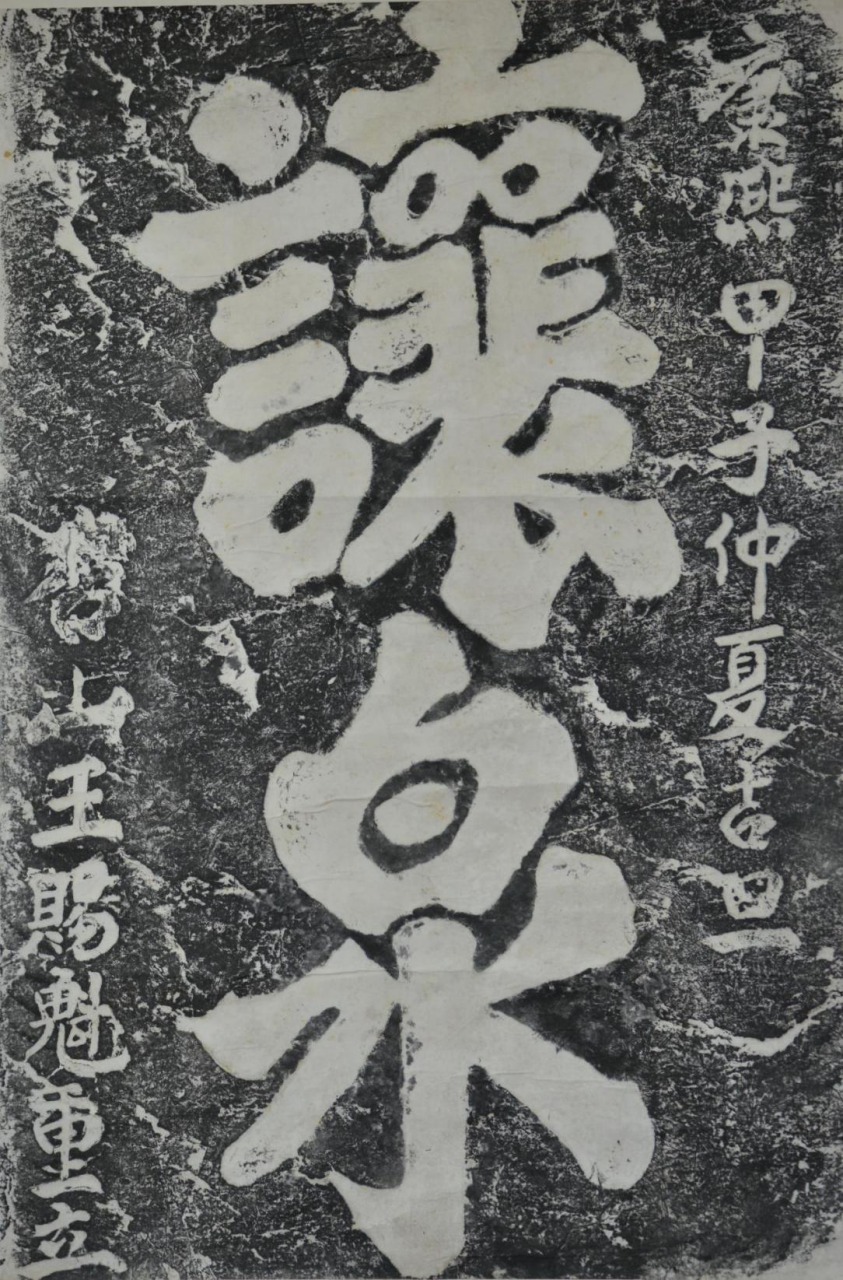 康熙甲子仲夏吉旦
讓泉
山王賜魁重立